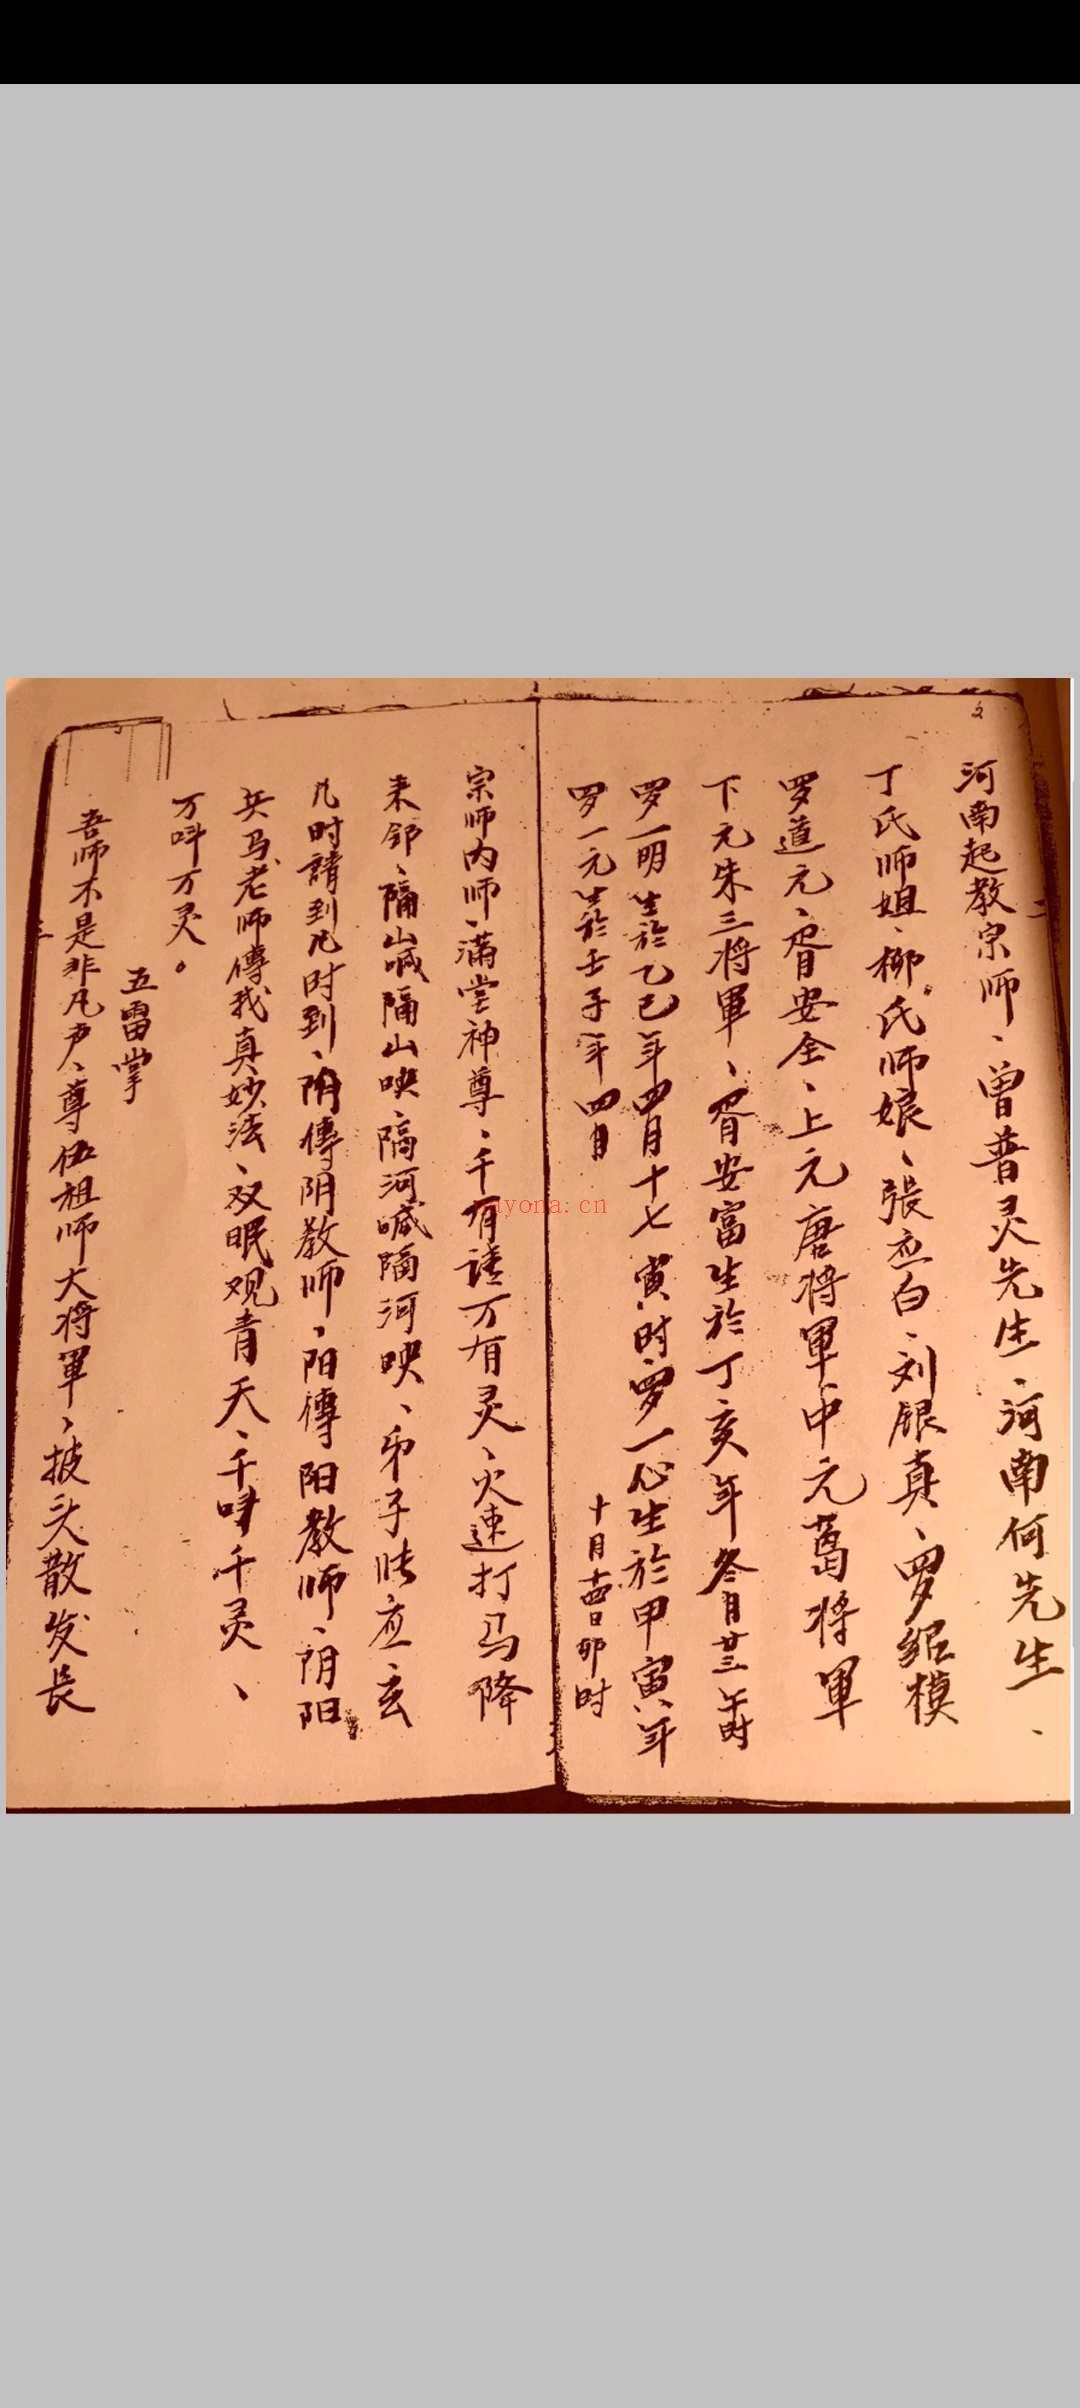 2
河南起教宗师、曾普灵先生、河南何先生、
丁氏师姐、柳氏师娘、張应白、刘银真、罗紹模
罗道元、胥安全、上元唐将軍中元葛将軍
下元朱三将軍、胥安富生於丁亥年冬月廿三午时
罗一明生於乙巳年四月十七寅时罗一心生於甲寅年
罗一元生於壬子年四月十月十四日卯时
宗师内师、满堂神尊、千有请万有灵、火速打马降
来邻、隔山喊隔山映隔河喊隔河映、弟子法应玄
凡时請到凡时到、阴傳阴教师、阳傳阳教师、阴阳
兵马老师傳我真妙法、双眼观青天、千呌千灵、
万呌万灵。
五雷掌
吾师不是非凡声、尊伍祖师大将軍、披头散发長
nayona.cn
二
三